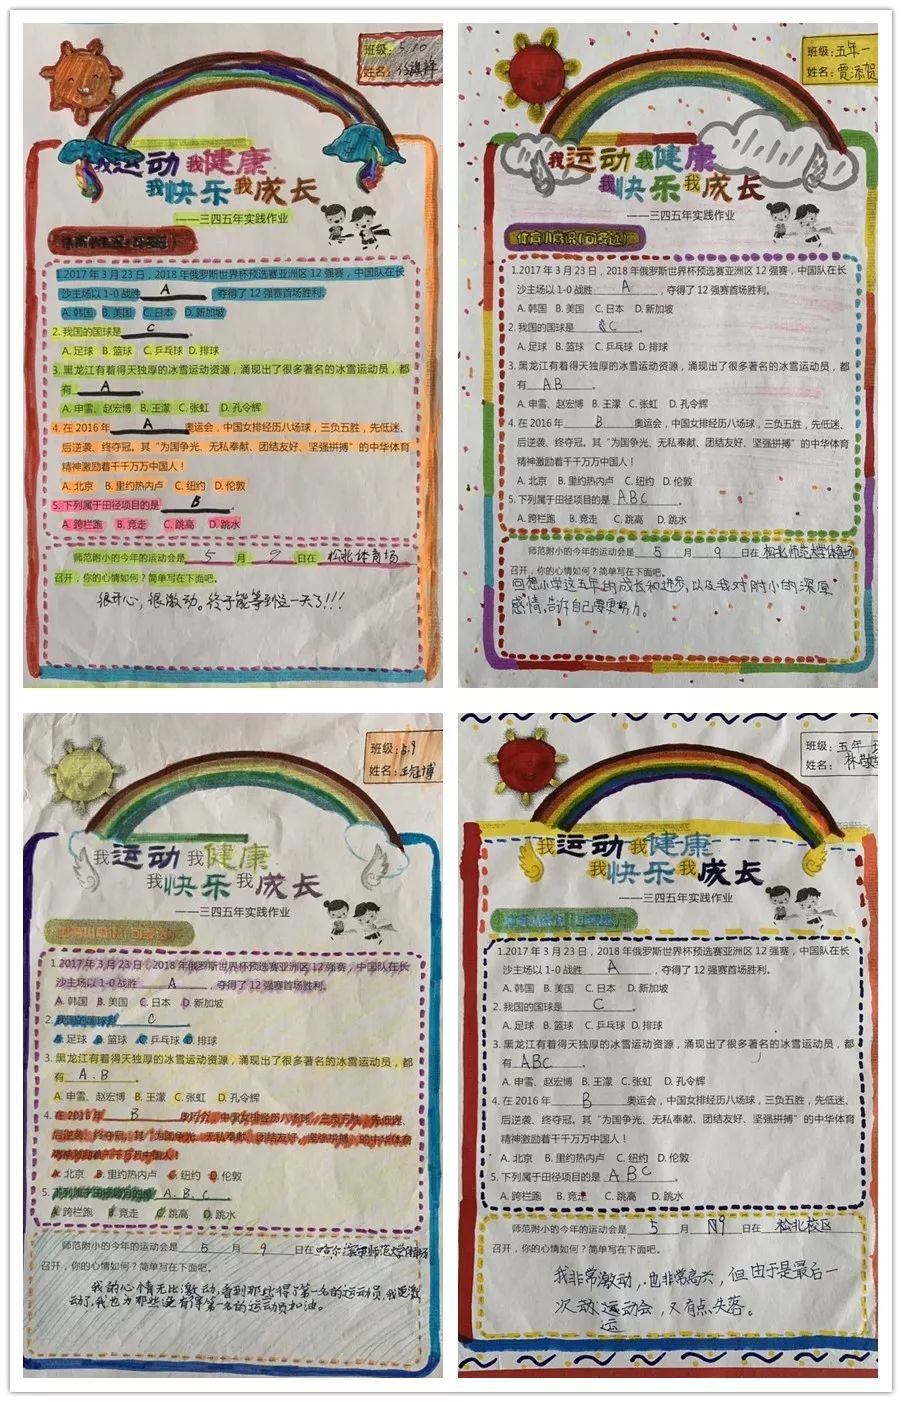 班级：5.10
姓名：
我运动我健康
我快乐我成长
——三四五年实践作业
1.2017 年 3 月 23 日，2018 年俄罗斯世界杯预选赛亚洲区 12 强赛，中国队在长
沙主场以 1-0 战胜 A ，夺得了 12 强赛首场胜利。
A. 韩国 B. 美国 C. 日本 D. 新加坡
2. 我国的国球是 C 。
A. 足球 B. 篮球 C. 乒乓球 D. 排球
3. 黑龙江有着得天独厚的冰雪运动资源，涌现出了很多著名的冰雪运动员，都
有 A 。
A. 申雪、赵宏博 B. 王濛 C. 张虹 D. 孔令辉
4. 在 2016 年 A 奥运会，中国女排经历八场球，三负五胜，先低迷、
后逆袭、终夺冠。其“为国争光、无私奉献、团结友好、坚强拼搏”的中华体育
精神激励着千千万万中国人！
A. 北京 B. 里约热内卢 C. 纽约 D. 伦敦
5. 下列属于田径项目的是 B
A. 跨栏跑 B. 竞走 C. 跳高 D. 跳水
师范附小的今年的运动会是 5 月 9 日在 松北体育场
召开，你的心情如何？简单写在下面吧。
很开心，很激动。终于能等到这一天了!!!
班级：五年一
姓名：贾添贺
我运动我健康
我快乐我成长
——三四五年实践作业
体育小常识(可多选)
1.2017 年 3 月 23 日，2018 年俄罗斯世界杯预选赛亚洲区 12 强赛，中国队在长
沙主场以 1-0 战胜 A ，夺得了 12 强赛首场胜利。
A. 韩国 B. 美国 C. 日本 D. 新加坡
2. 我国的国球是 C 。
A. 足球 B. 篮球 C. 乒乓球 D. 排球
3. 黑龙江有着得天独厚的冰雪运动资源，涌现出了很多著名的冰雪运动员，都
有 AB 。
A. 申雪、赵宏博 B. 王濛 C. 张虹 D. 孔令辉
4. 在 2016 年 B 奥运会，中国女排经历八场球，三负五胜，先低迷、
后逆袭、终夺冠。其“为国争光、无私奉献、团结友好、坚强拼搏”的中华体育
精神激励着千千万万中国人！
A. 北京 B. 里约热内卢 C. 纽约 D. 伦敦
5. 下列属于田径项目的是 ABC
A. 跨栏跑 B. 竞走 C. 跳高 D. 跳水
师范附小的今年的运动会是 5 月 9 日在 松北师范大学体育场
召开，你的心情如何？简单写在下面吧。
回想小学这五年的成长和进步，以及我对附小的深厚
感情，告诉自己要更努力。
班级：5.9
姓名：王冠博
我运动我健康
我快乐我成长
——三四五年实践作业
1.2017 年 3 月 23 日，2018 年俄罗斯世界杯预选赛亚洲区 12 强赛，中国队在长
沙主场以 1-0 战胜 A ，夺得了 12 强赛首场胜利。
A. 韩国 B. 美国 C. 日本 D. 新加坡
2. 我国的国球是 C
A. 足球 B. 篮球 C. 乒乓球 D. 排球
3. 黑龙江有着得天独厚的冰雪运动资源，涌现出了很多著名的冰雪运动员，都
有 A.B 。
A. 申雪、赵宏博 B. 王濛 C. 张虹 D. 孔令辉
4. 在 2016 年 B 奥运会，中国女排经历八场球，三负五胜，先低迷、
后逆袭、终夺冠。其“为国争光、无私奉献、团结友好、坚强拼搏”的中华体育
精神激励着千千万万中国人！
A. 北京 B. 里约热内卢 C. 纽约 D. 伦敦
5. 下列属于田径项目的是 A.B.C
A. 跨栏跑 B. 竞走 C. 跳高 D. 跳水
师范附小的今年的运动会是 5 月 9 日在 哈尔滨师范大学
召开，你的心情如何？简单写在下面吧。
我的心情无比激动，看到那些得了第一名的运动员，我更激
动了，我也为那些没有得第一名的运动员加油。
班级：五年一
姓名：林
我运动我健康
我快乐我成长
——三四五年实践作业
1.2017 年 3 月 23 日，2018 年俄罗斯世界杯预选赛亚洲区 12 强赛，中国队在长
沙主场以 1-0 战胜 A ，夺得了 12 强赛首场胜利。
A. 韩国 B. 美国 C. 日本 D. 新加坡
2. 我国的国球是 C 。
A. 足球 B. 篮球 C. 乒乓球 D. 排球
3. 黑龙江有着得天独厚的冰雪运动资源，涌现出了很多著名的冰雪运动员，都
有 ABC 。
A. 申雪、赵宏博 B. 王濛 C. 张虹 D. 孔令辉
4. 在 2016 年 B 奥运会，中国女排经历八场球，三负五胜，先低迷、
后逆袭、终夺冠。其“为国争光、无私奉献、团结友好、坚强拼搏”的中华体育
精神激励着千千万万中国人！
A. 北京 B. 里约热内卢 C. 纽约 D. 伦敦
5. 下列属于田径项目的是 ABC
A. 跨栏跑 B. 竞走 C. 跳高 D. 跳水
师范附小的今年的运动会是 5 月 9 日在 松北校区
召开，你的心情如何？简单写在下面吧。
我非常激动，也非常高兴，但由于是最后一
次动运动会，又有点失落。
运